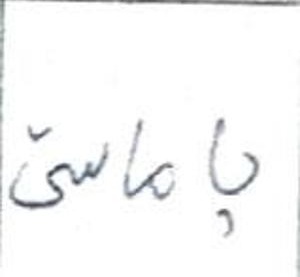 پاماسێ